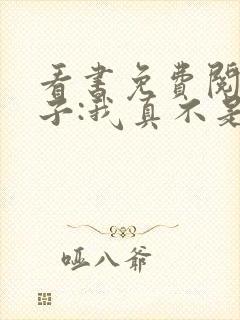 看書免費閱
子:我真不是
哑八爺